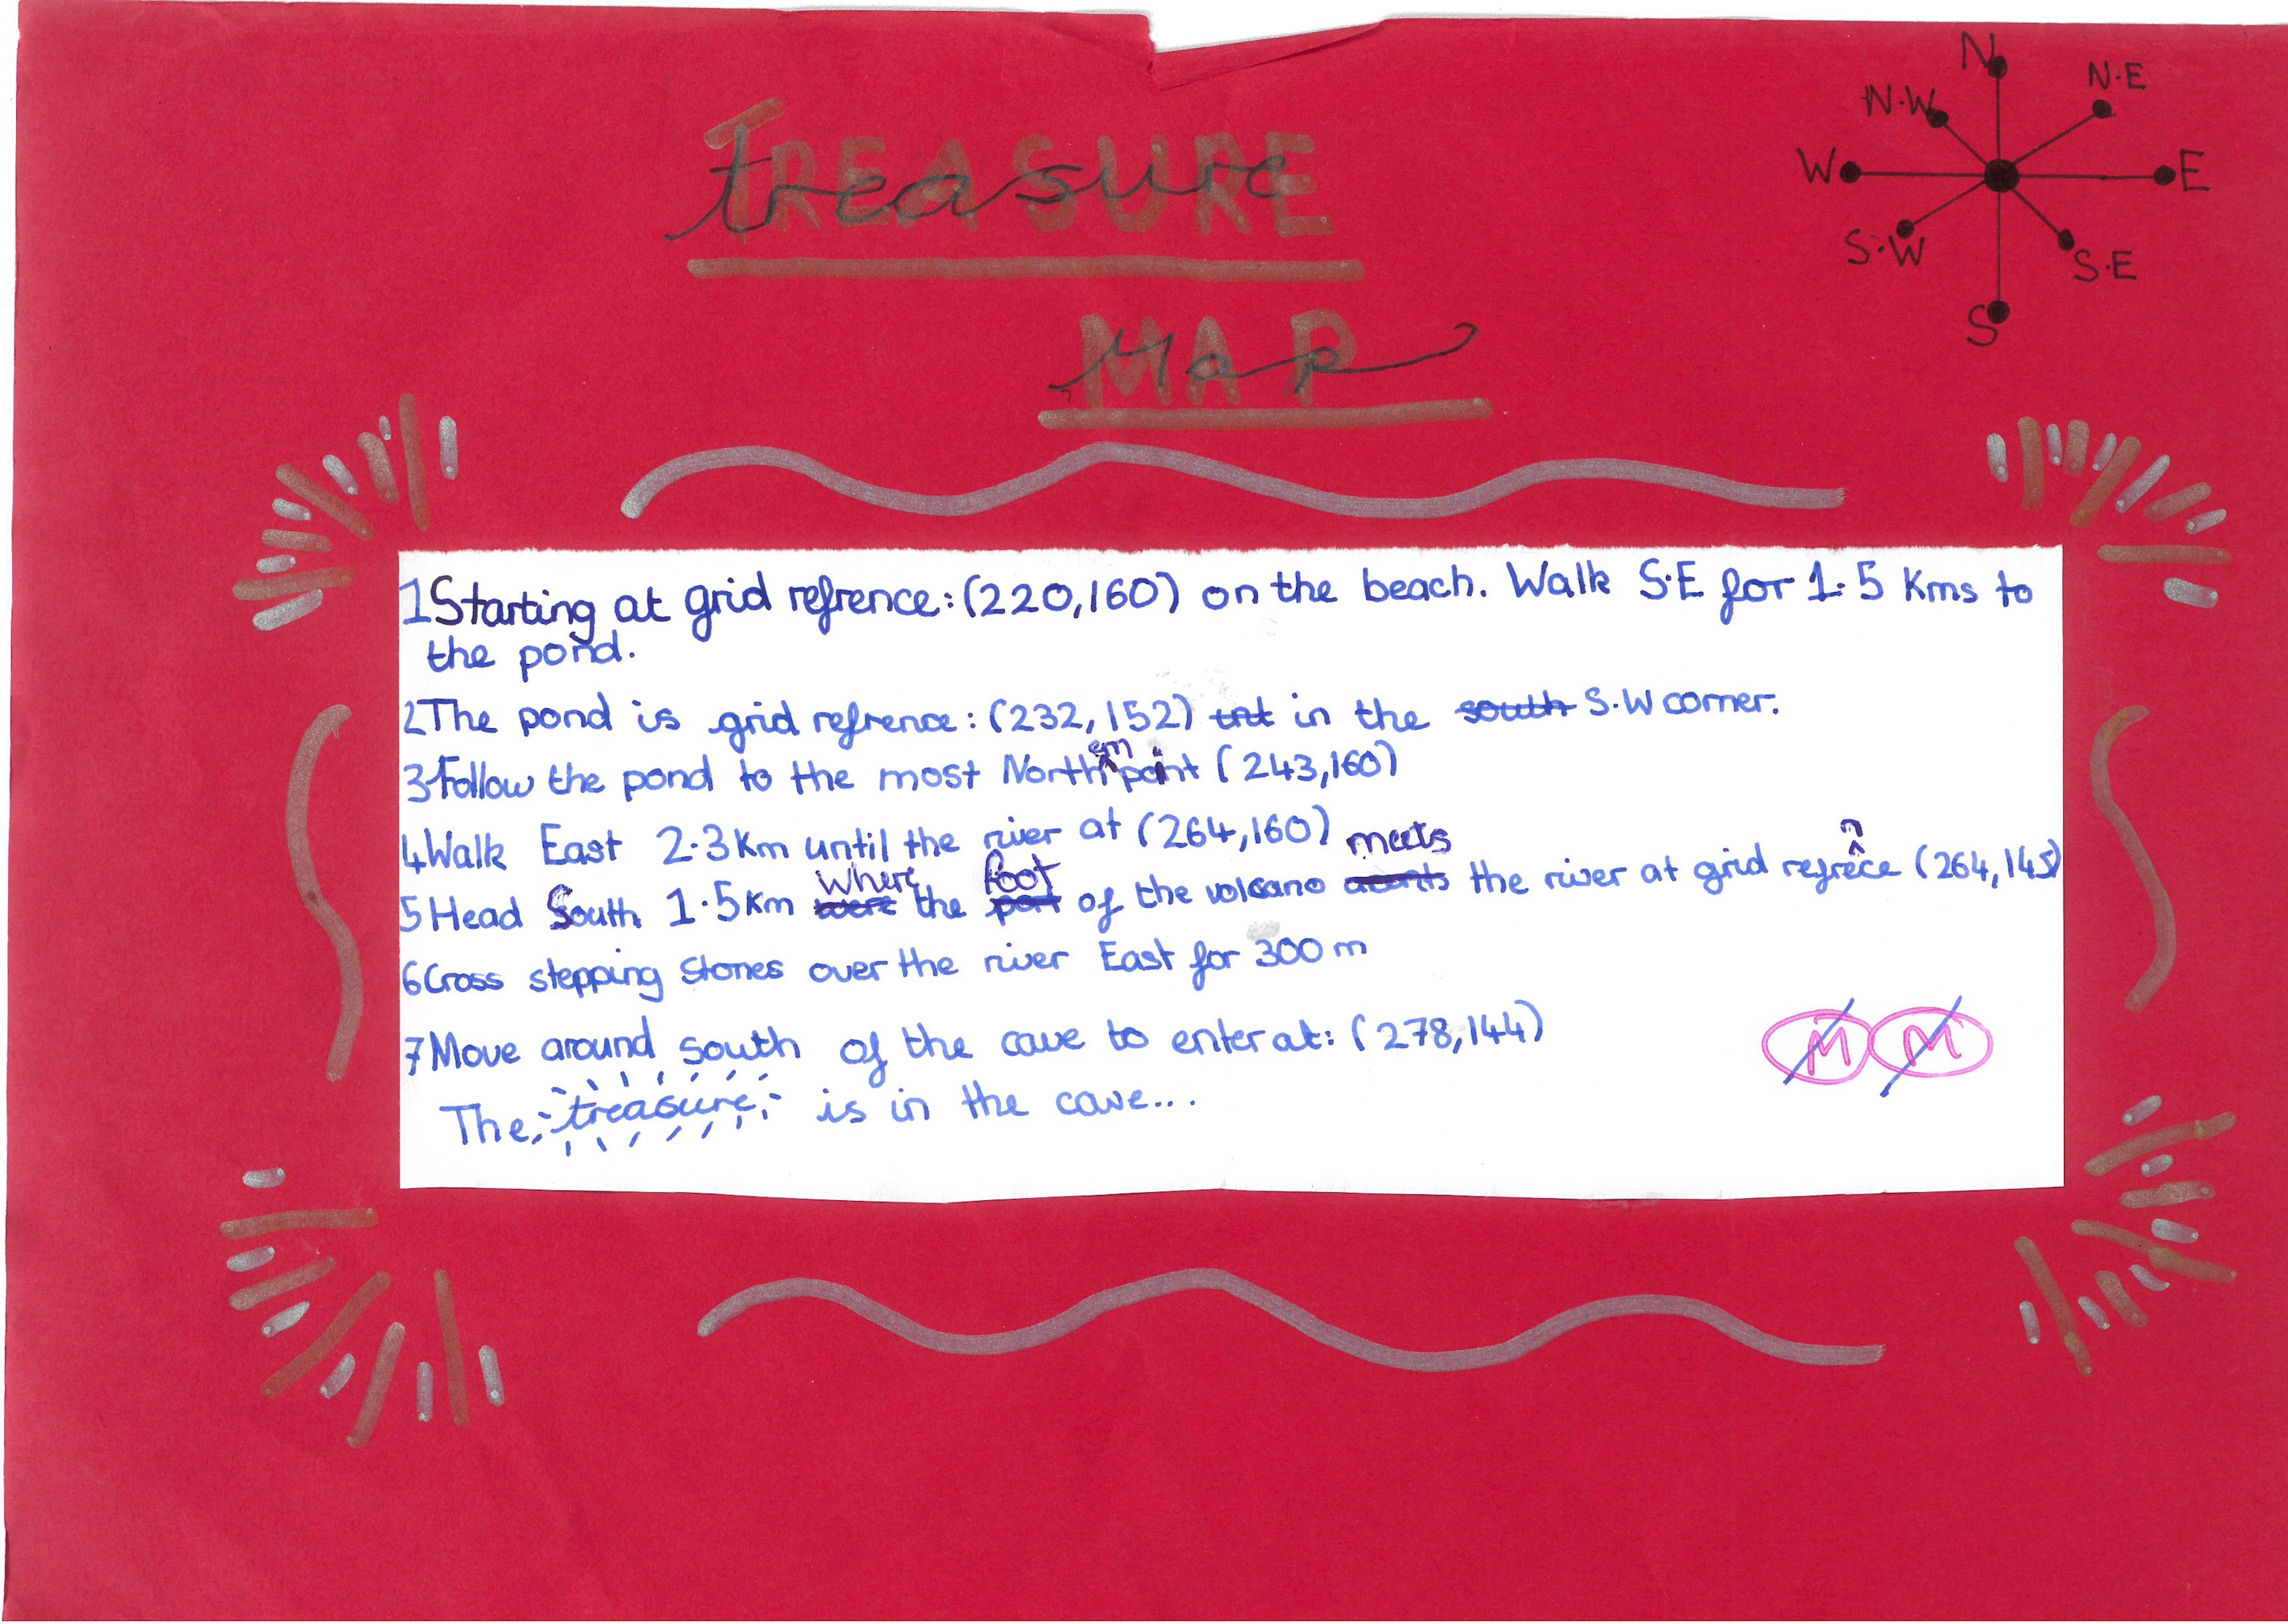 Treasure
Map
N
N.E
N.W
W
E
S.W
S.E
S
1 Starting at grid refrence: (220,160) on the beach. Walk S.E for 1.5 Kms to
the pond.
2 The pond is grid refrence: (232,152) in the south S.W corner.
3 Follow the pond to the most Northern point (243,160)
4 Walk East 2.3 Km until the river at (264,160)
5 Head South 1.5 Km were where the part foot of the volcano meets the river at grid refrence (264,145)
6 Cross stepping stones over the river East for 300 m
7 Move around south of the cave to enter at: (278,144)
The treasure is in the cave...
M M